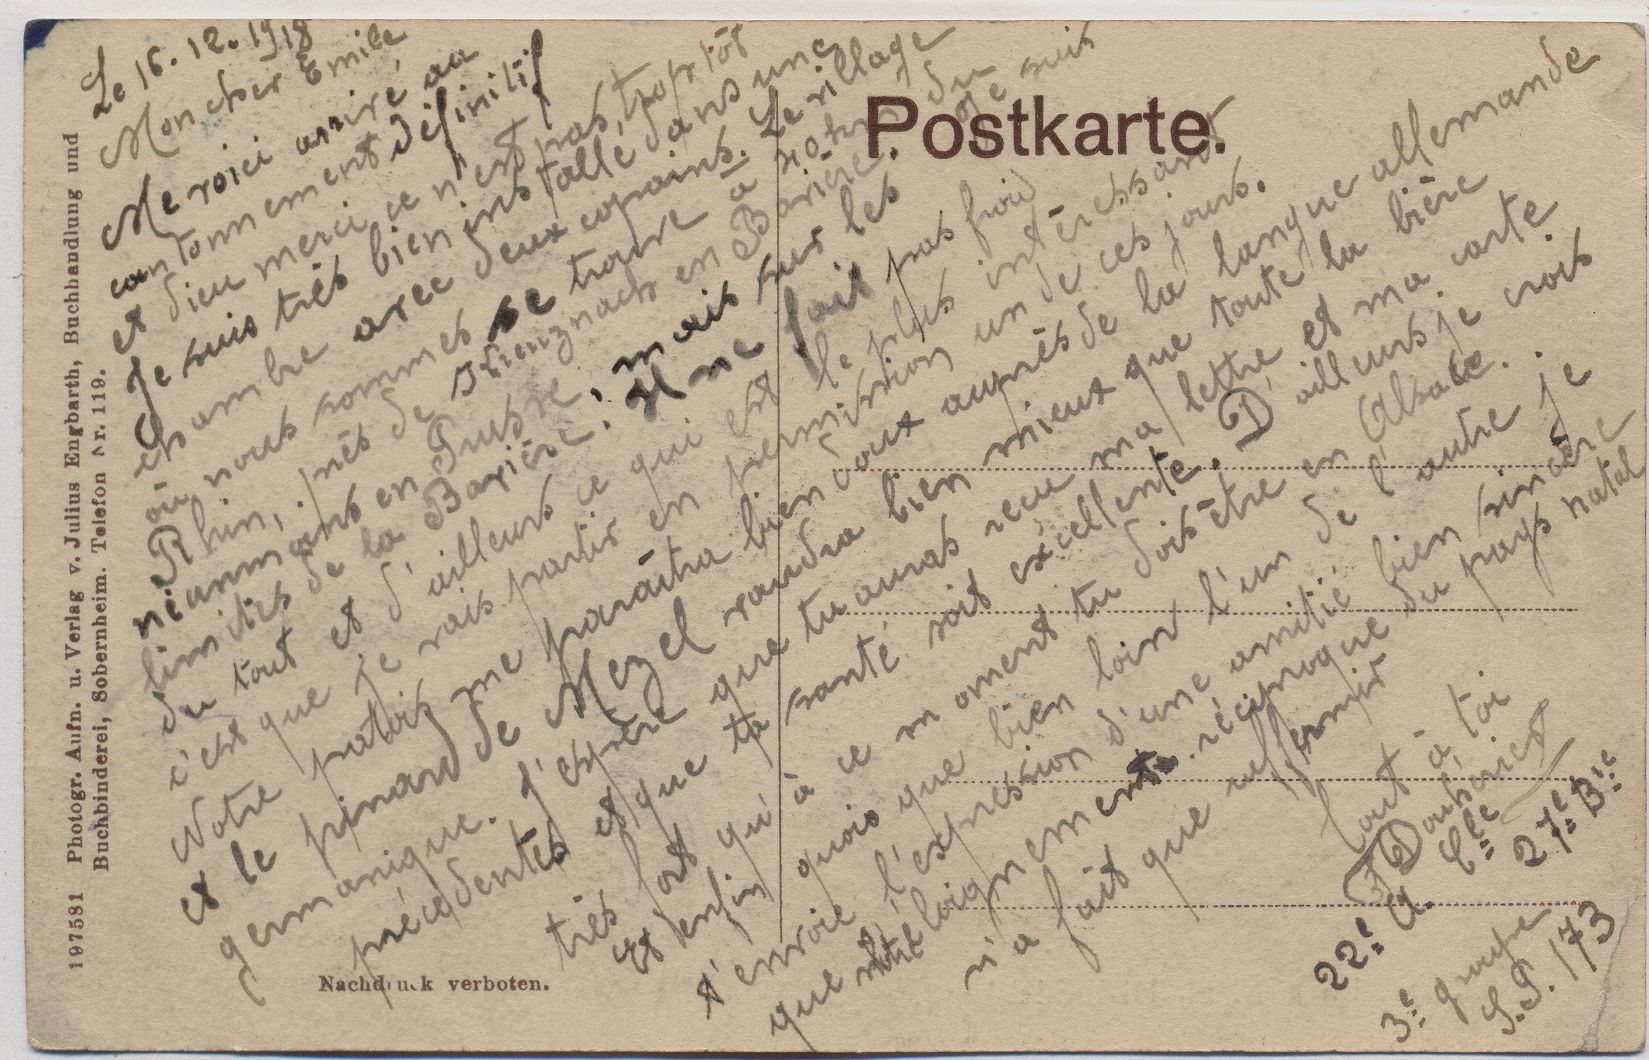 Le 16.12.1918
Mon cher Emile
Me voici arrivé au
cantonnement définitif
et dieu merci ce n'est pas trop tôt
Je suis très bien installé dans une
chambre avec deux copains. Le village
où nous sommes se trouve à 40 km du
Rhin, près de Kreuznach en Bavière. Je suis
néanmoins en Prusse, mais sur les
limites de la Bavière. Il ne fait pas froid
du tout et d'ailleurs ce qui est le plus intéressant
c'est que je vais partir en permission un de ces jours.
Notre patois me paraîtra bien doux auprès de la langue allemande
et le pinard de Mezel vaudra bien mieux que toute la bière
germanique. J'espère que tu auras reçu ma lettre et ma carte
précédentes et que ta santé soit excellente. D'ailleurs je crois
très fort qu'à ce moment tu dois être en Alsace.
Et enfin quoique bien loin l'un de l'autre je
t'envoie l'expression d'une amitié bien sincère
que notre éloignement réciproque du pays natal
n'a fait que raffermir
Tout à toi
22e 27e Bie
3e groupe
S.P. 173
Postkarte.
197581 Photogr. Aufn. u. Verlag v. Julius Engbarth, Buchhandlung und
Buchbinderei, Sobernheim. Telefon Nr. 119.
Nachdruck verboten.